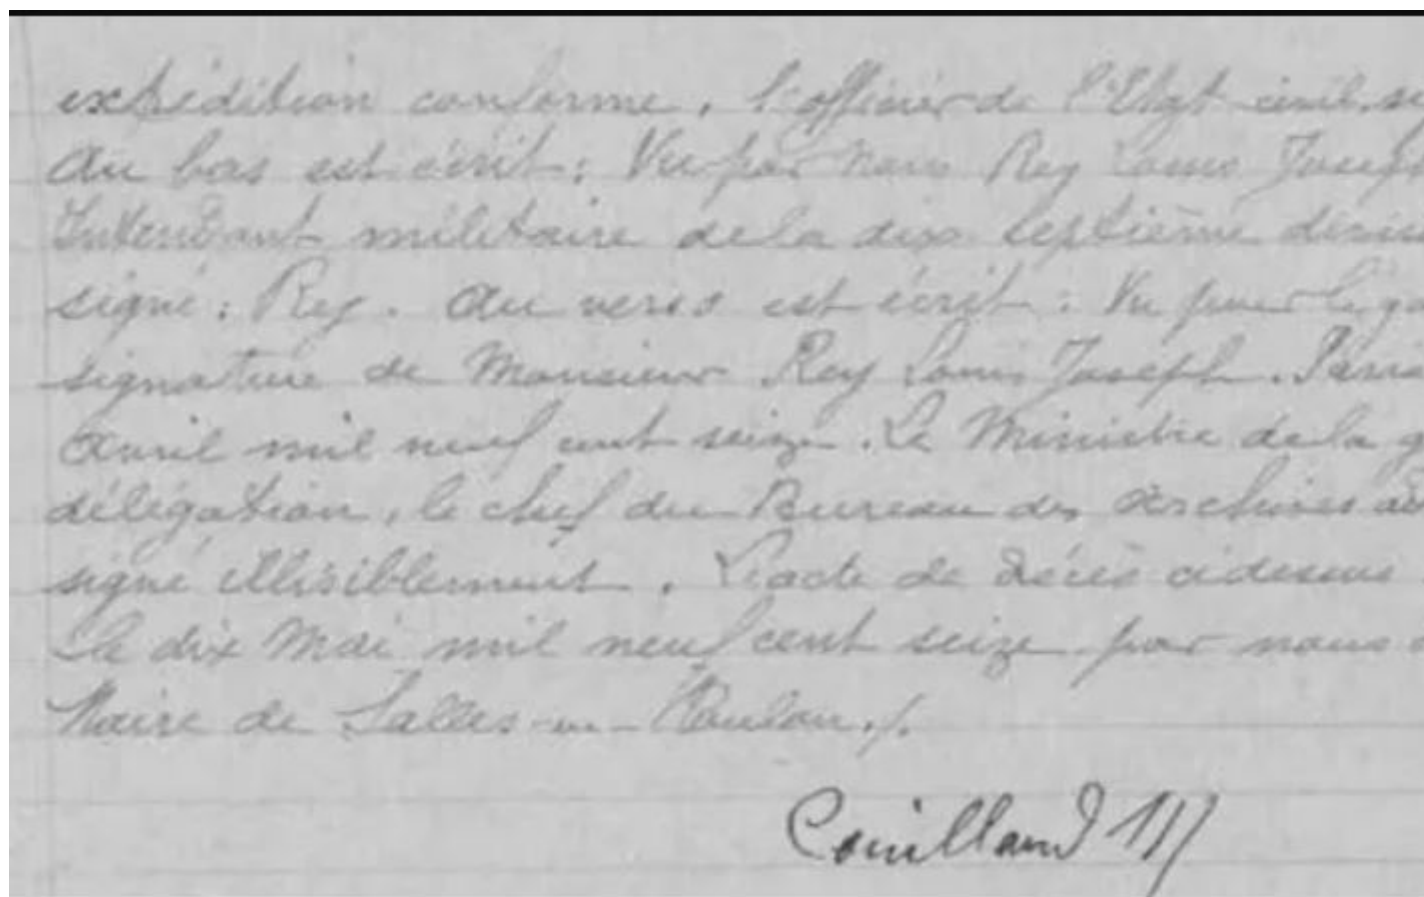 expédition conforme, l'officier de l'Etat civil, si
Au bas est écrit : Vu par nous Rey Louis Joseph
Intendant militaire de la dix septième divis
signé : Rey. Au verso est écrit : Vu pour lég
signature de Monsieur Rey Louis Joseph. Paris
Avril mil neuf cent seize. Le Ministre de la g
délégation, le chef du Bureau des Archives ad
signé illisiblement. L'acte de décès cidessus
Le dix Mai mil neuf cent seize par nous
Maire de Salles-en-Toulon./.
Couillaud